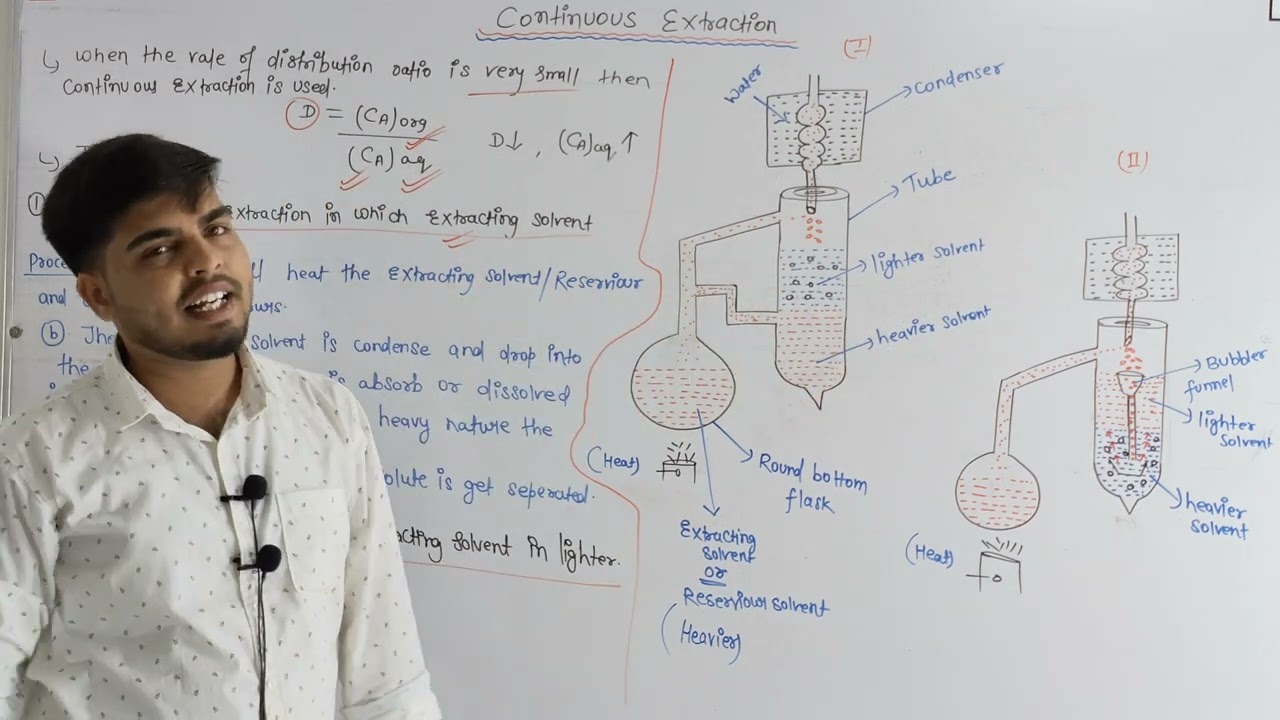 Continuous Extraction
↳ when the rate of distribution ratio is very small then
Continuous Extraction is used.
D = (CA)org
(CA)aq
D↓ , (CA)aq ↑
↳
①
xtraction in which Extracting solvent
Proce
heat the Extracting solvent/Reserviour
and
ours.
ⓑ The
solvent is condense and drop into
the
is absorb or dissolved
heavy nature the
olute is get seperated.
acting solvent in lighter.
(I)
water
condenser
Tube
lighter solvent
heavier solvent
(Heat)
Round bottom
flask
Extracting
solvent
or
Reserviour solvent
(Heavier)
(II)
Bubbler
funnel
lighter
solvent
heavier
solvent
(Heat)